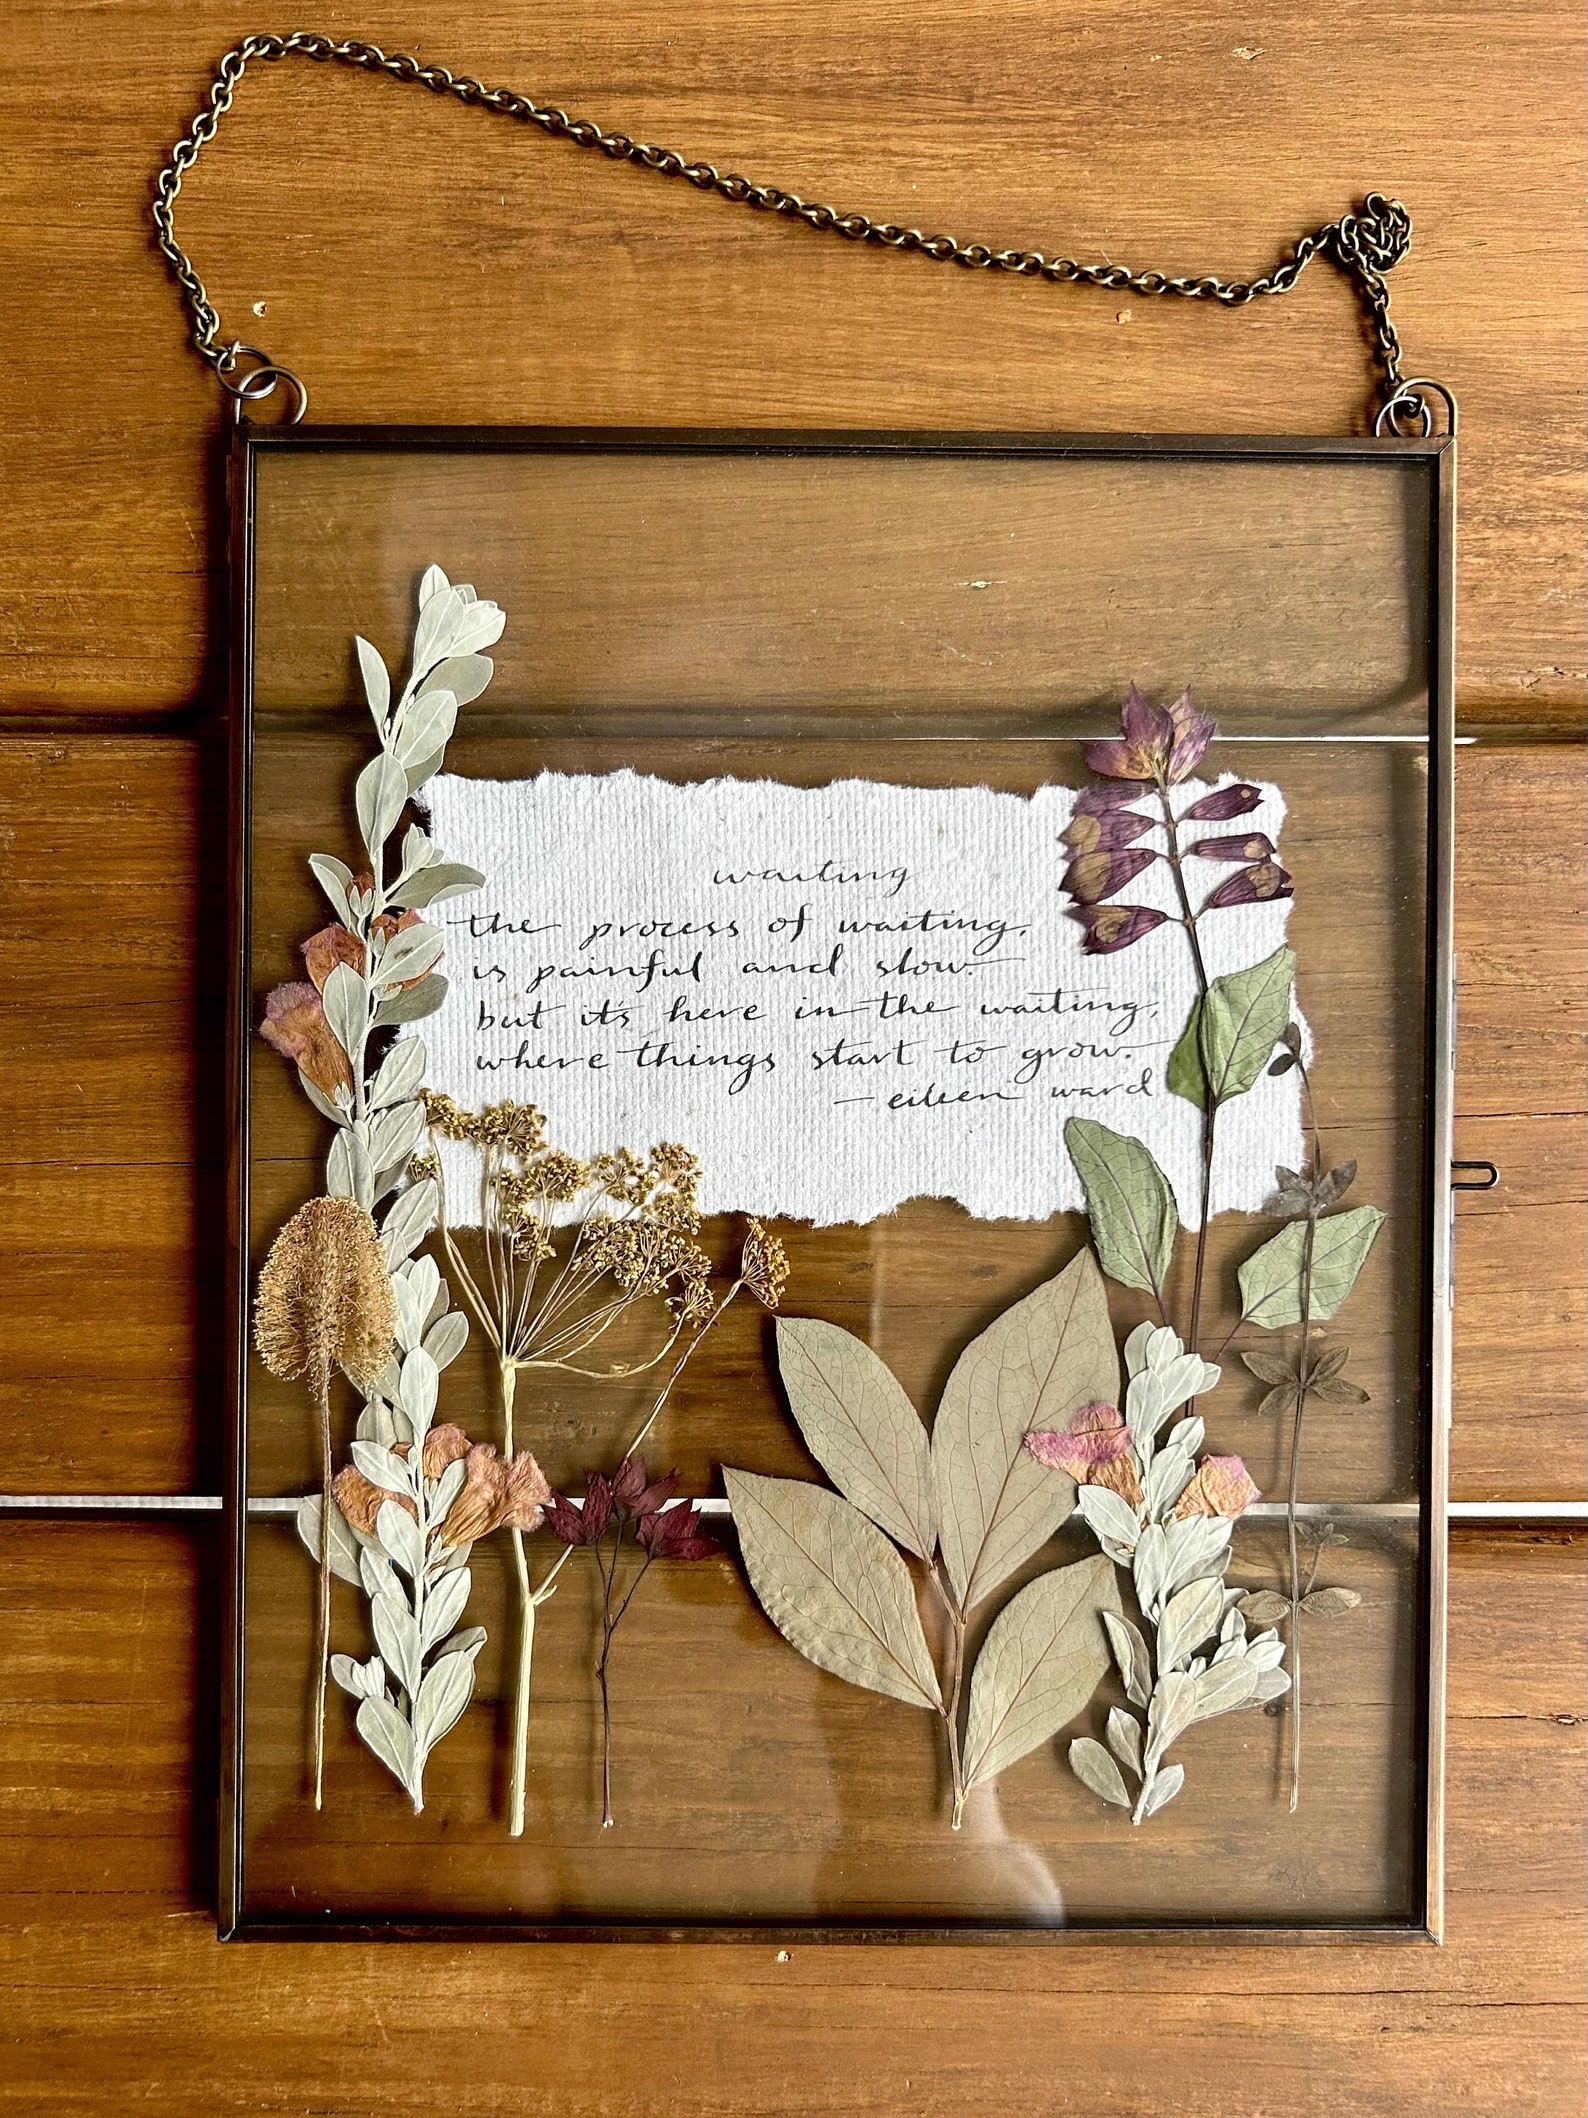 waiting
the process of waiting,
is painful and slow.
but it's here in the waiting,
where things start to grow.
- eileen ward